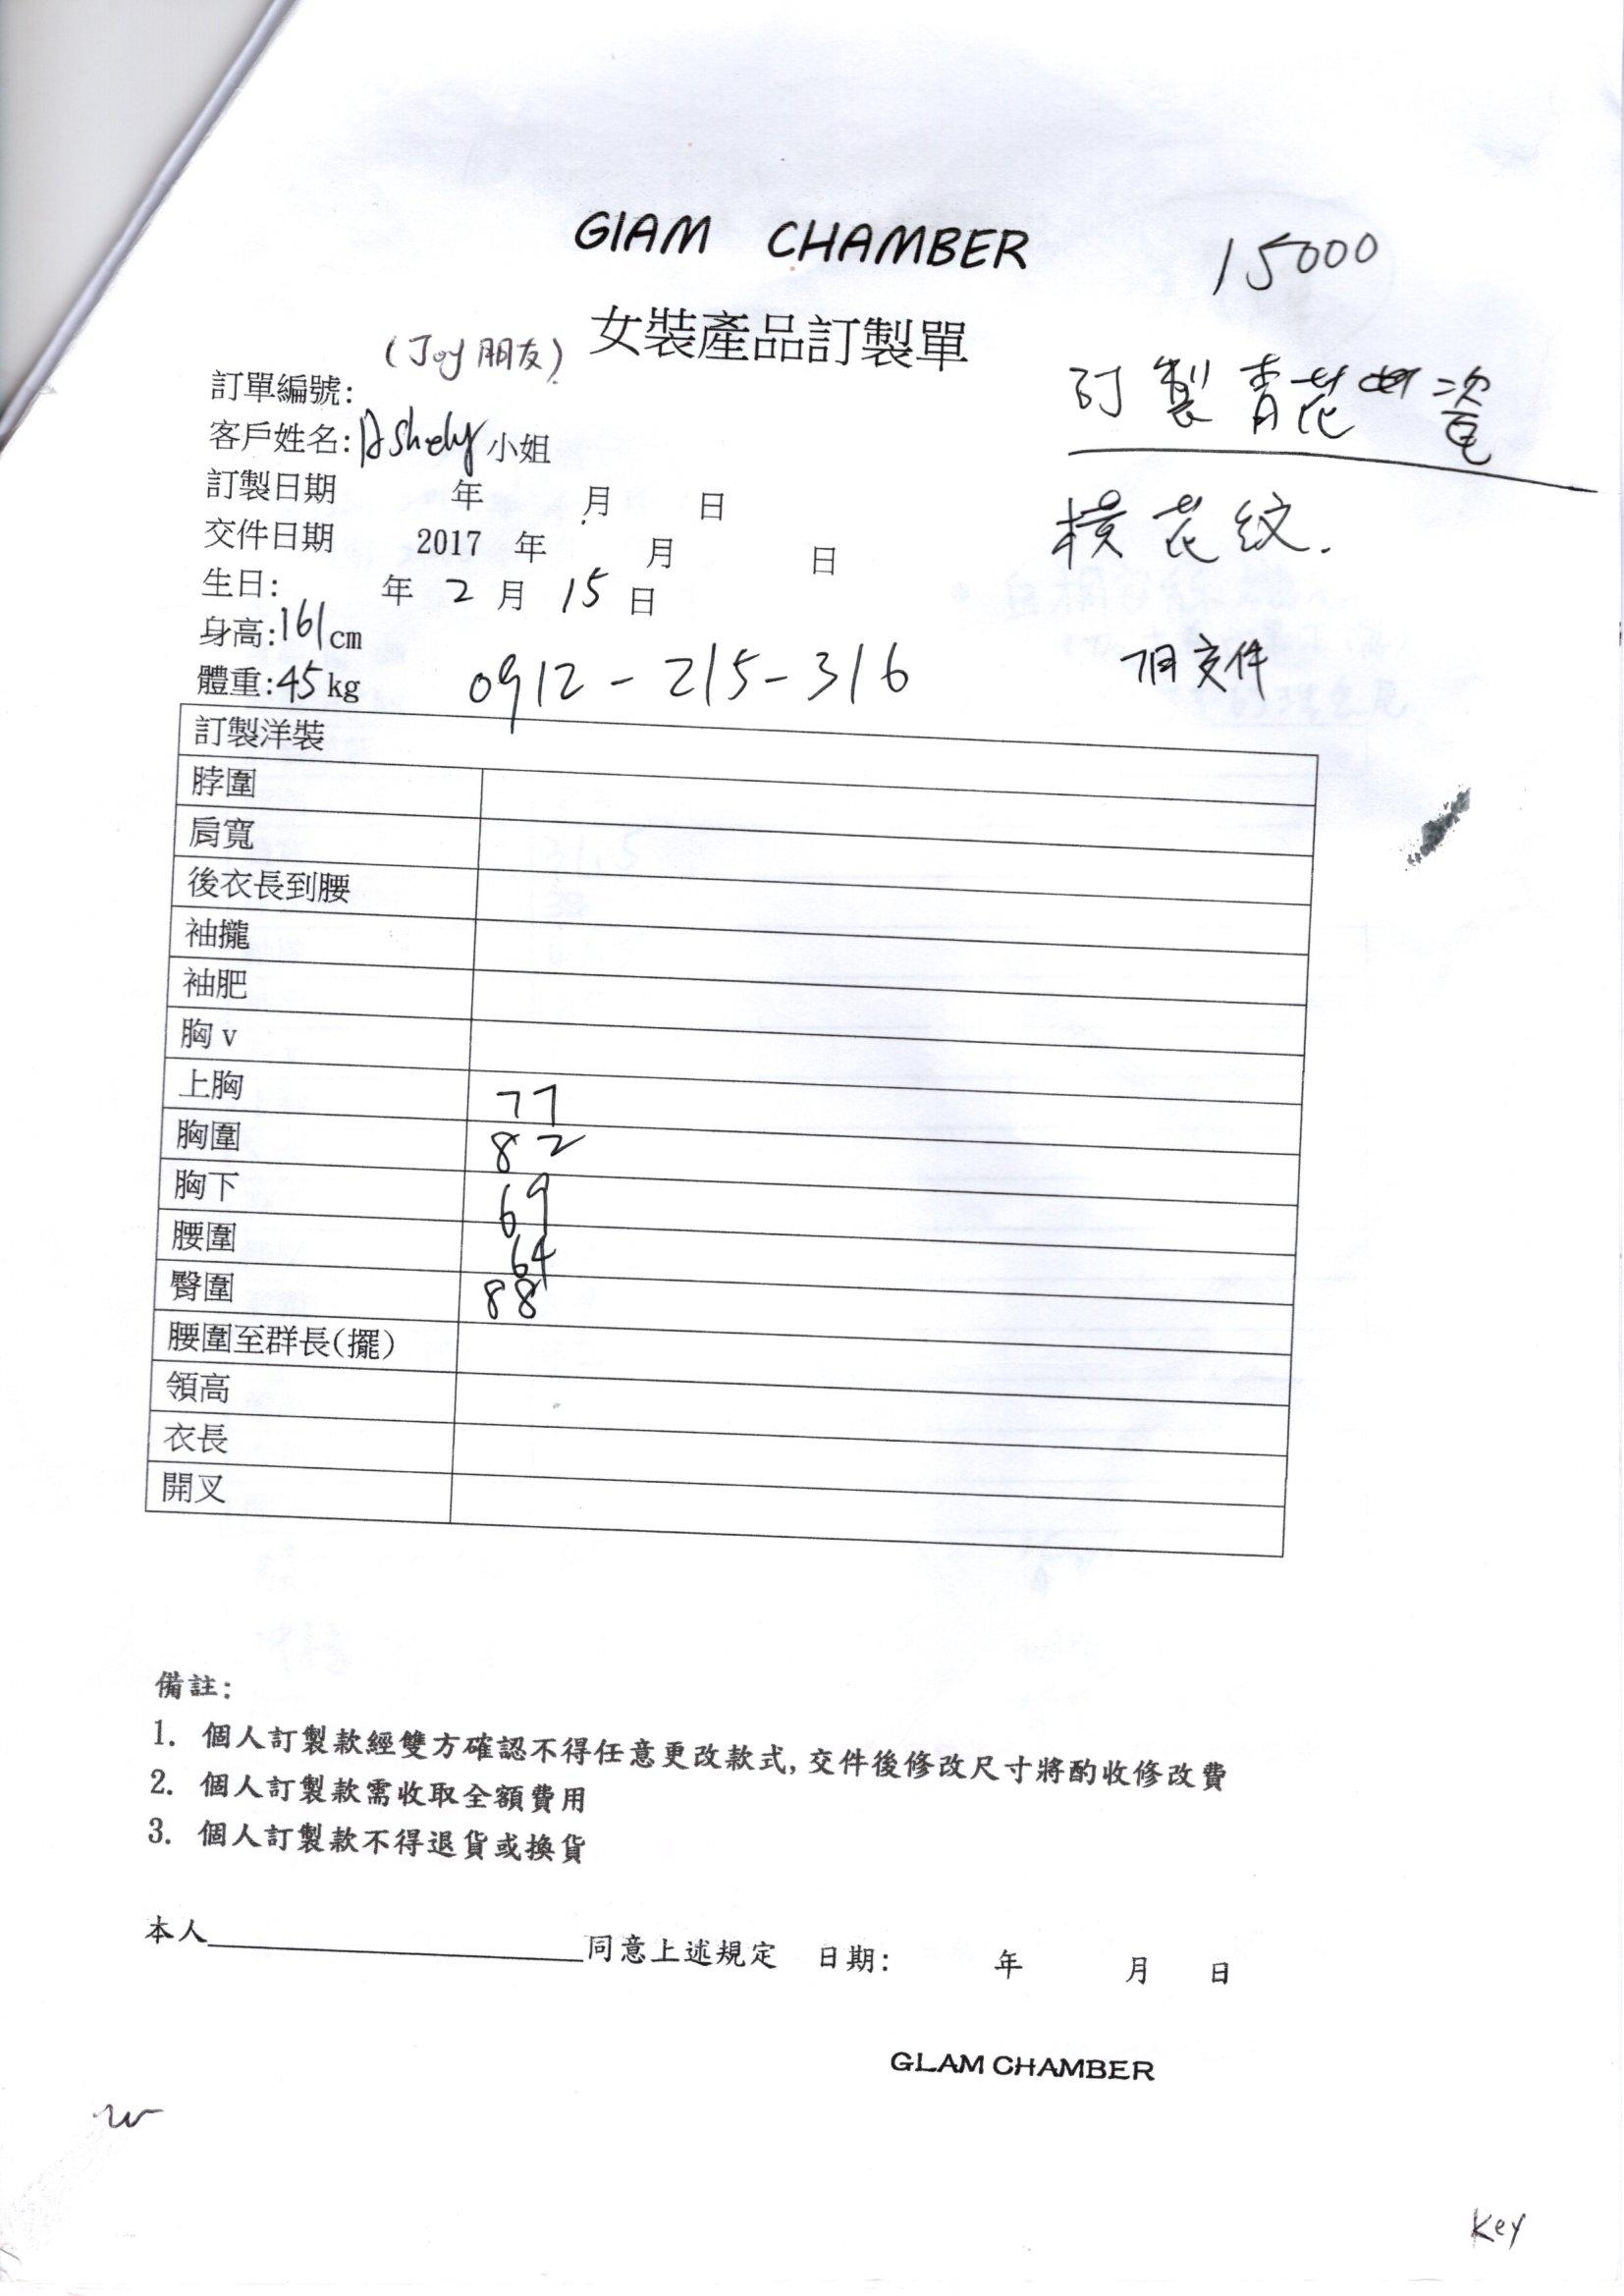 GIAM CHAMBER
15000
女裝產品訂製單
(Joy 朋友)
訂單編號:
客戶姓名: Ashely 小姐
訂製青花瓷
訂製日期 年 月 日
橫花紋.
交件日期 2017 年 月 日
生日: 年 2 月 15 日
身高:161cm
7月交件
體重:45kg
0912-215-316
訂製洋裝
脖圍
肩寬
後衣長到腰
袖攏
袖肥
胸 v
上胸 77
胸圍 82
胸下 69
腰圍 64
臀圍 88
腰圍至群長(擺)
領高
衣長
開叉
備註:
1. 個人訂製款經雙方確認不得任意更改款式,交件後修改尺寸將酌收修改費
2. 個人訂製款需收取全額費用
3. 個人訂製款不得退貨或換貨
本人 同意上述規定 日期: 年 月 日
GLAM CHAMBER
key